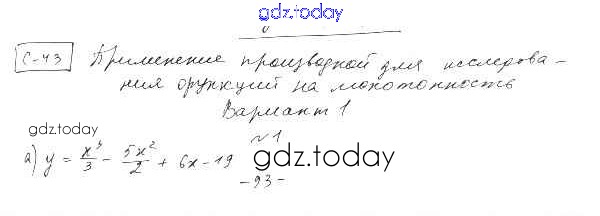 gdz.today
С-43 Применение производной для исследова-
ния функций на монотонность
Вариант 1
gdz.today
№1
а) y = x³/3 - 5x²/2 + 6x - 19
gdz.today
-93-